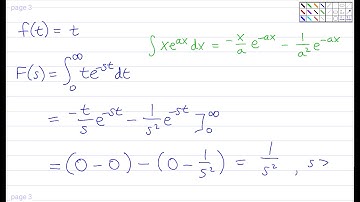 page 3
f(t) = t
∫ xe^{ax} dx = -x/a e^{-ax} - 1/a² e^{-ax}
F(s) = ∫₀^∞ te^{-st} dt
= -t/s e^{-st} - 1/s² e^{-st} ]₀^∞
= (0 - 0) - (0 - 1/s²) = 1/s² , s>
page 3